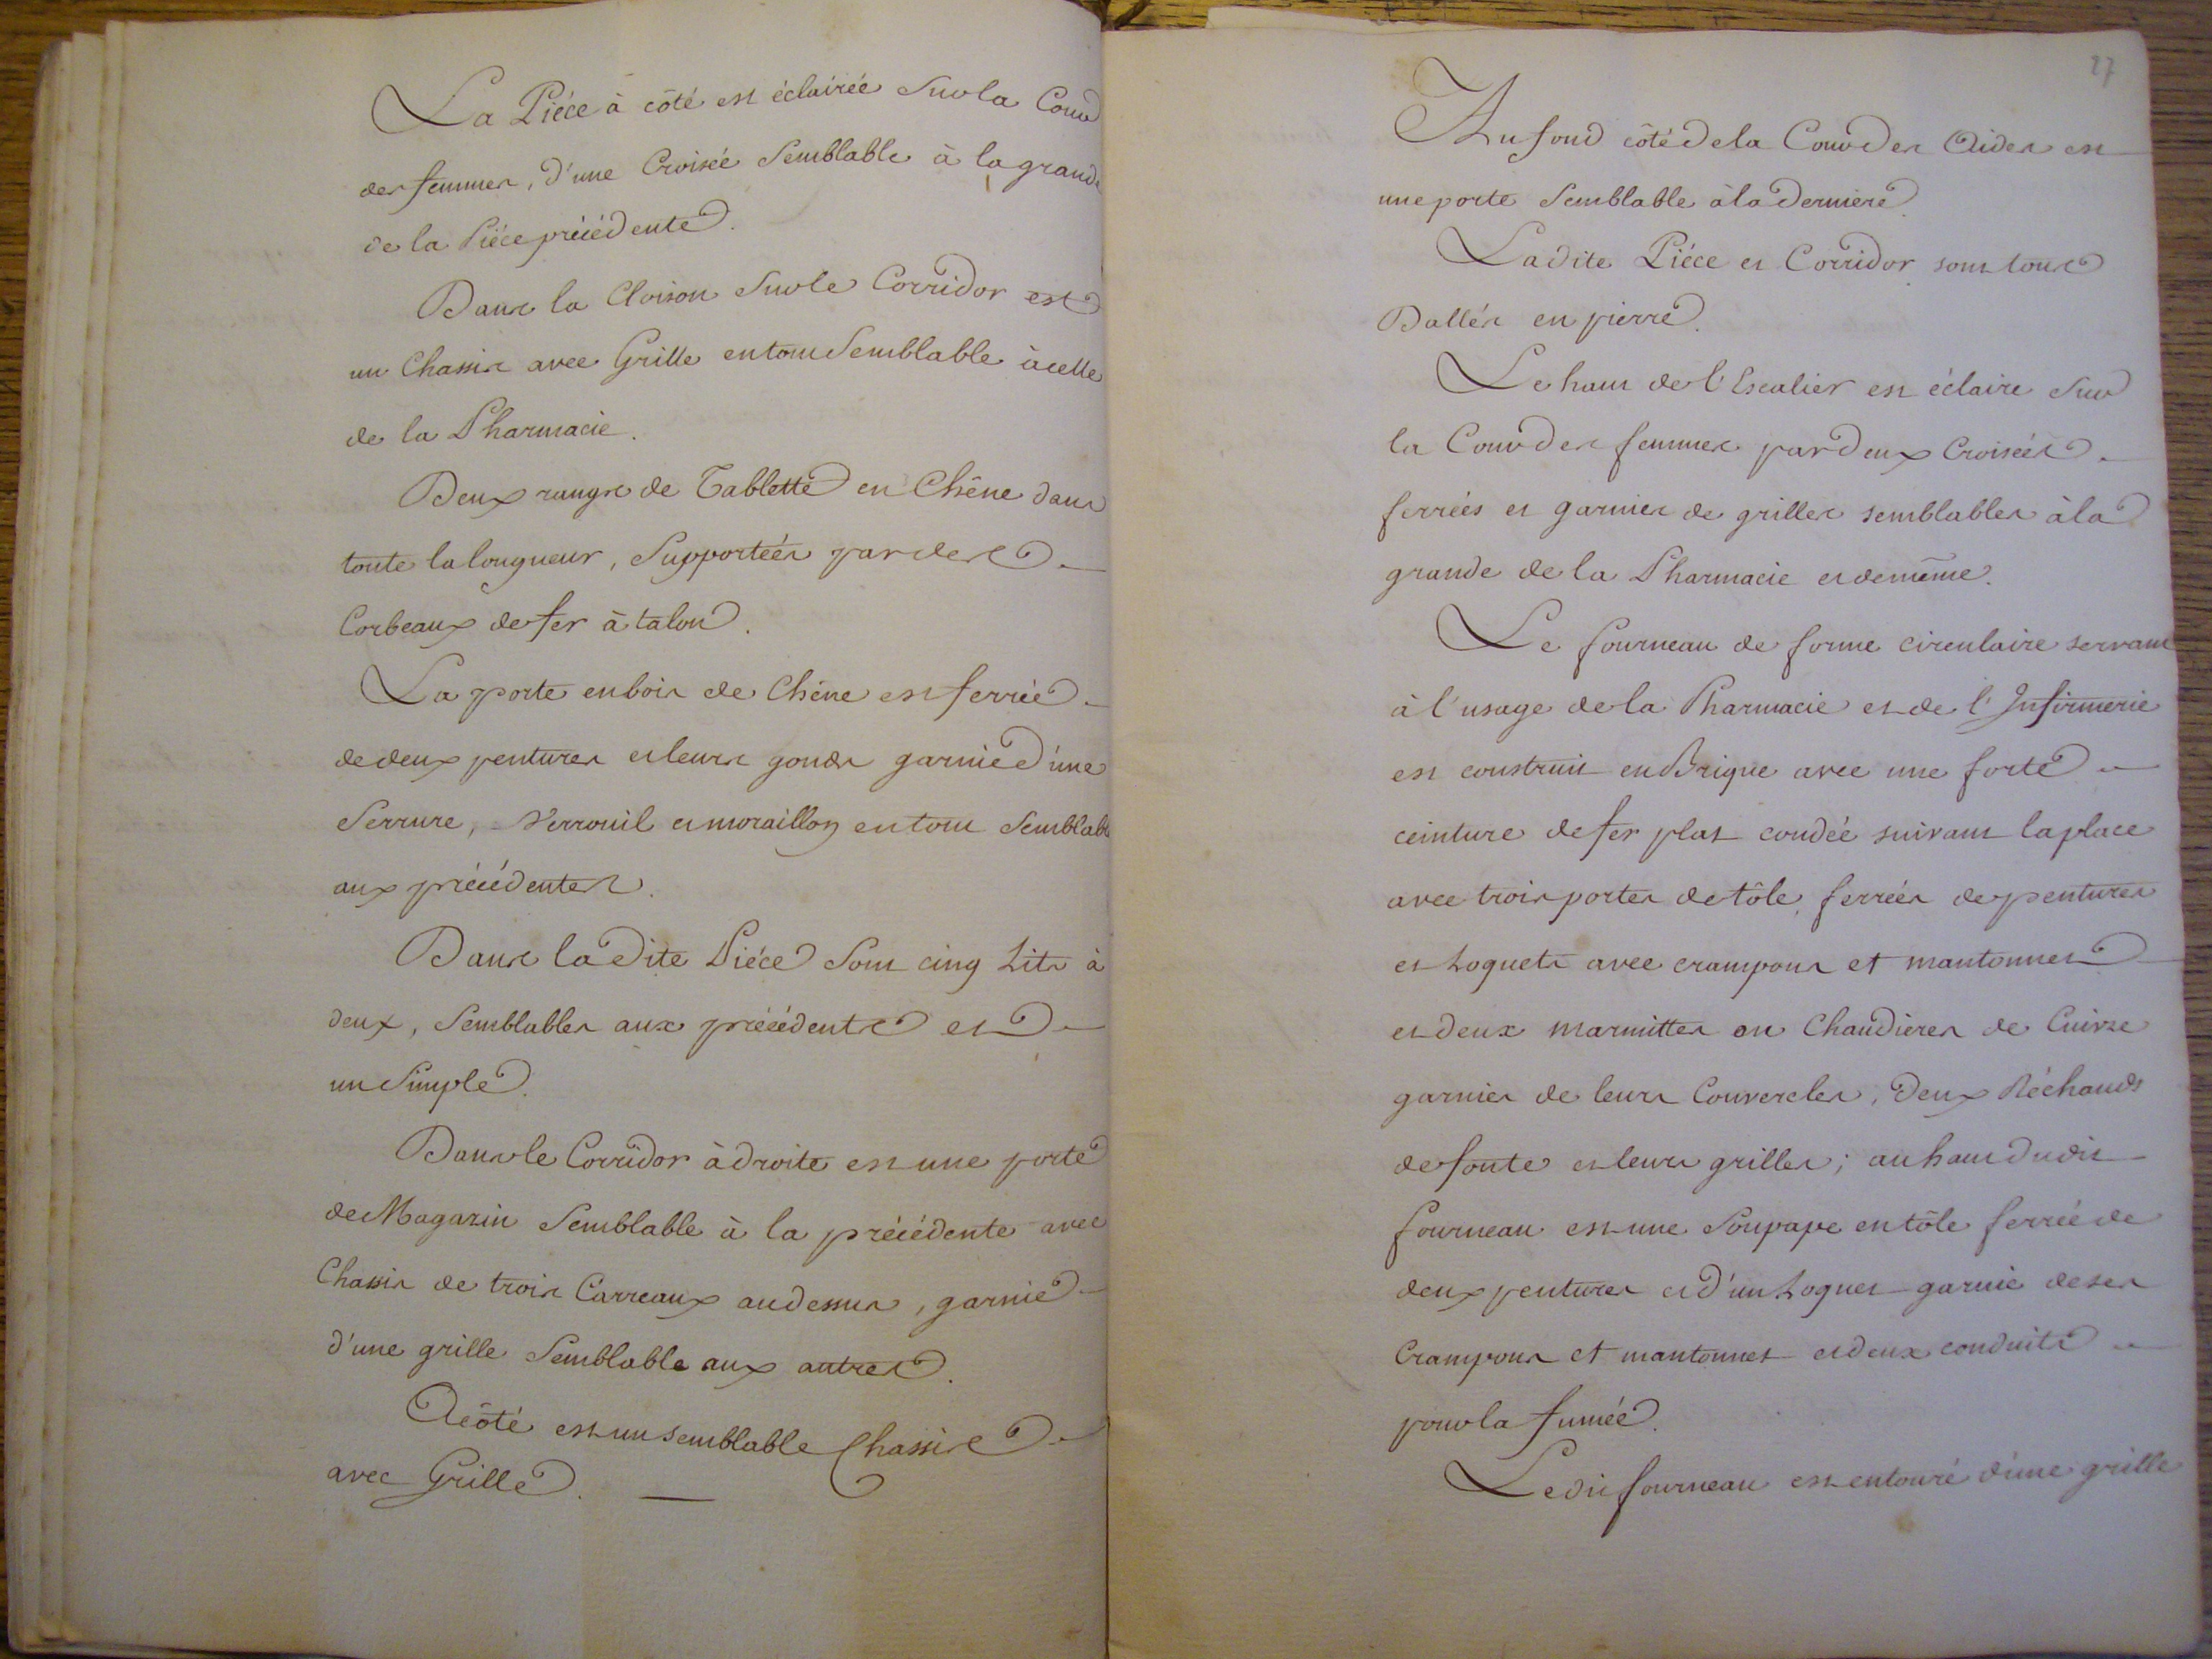 La Piéce à côté est éclairée Sur la Cour
des femmes, d'une Croisée Semblable à la grande
de la Piéce précédente.
Dans la Cloison Sur le Corridor est
un Chassis avec Grille en tout Semblable à celle
de la Pharmacie.
Deux rangs de Tablette en Chêne dans
toute la longueur, Supportées par des
Corbeaux de fer à talon.
La porte en bois de Chêne est ferrée
de deux pentures et leurs gonds garnie d'une
Serrure, Verrouil et moraillon en tout Semblable
aux précédentes.
Dans la dite Piéce Sont cinq Lits à
deux, Semblables aux précédents et
un Simple.
Dans le Corridor à droite est une porte
de Magazin Semblable à la précédente avec
Chassis de trois Carreaux audessus, garnie
d'une grille Semblable aux autres.
Acôté est un semblable Chassis
avec Grille.
27
Au fond côté de la Cour des Aides est
une porte Semblable à la derniere.
La dite Piéce et Corridor sont tous
Dallés en pierre.
Le haut de l'Escalier est éclaire Sur
la Cour des femmes par deux Croisées
ferrées et garnies de grilles semblables à la
grande de la Pharmacie et de même.
Le fourneau de forme circulaire servant
à l'usage de la Pharmacie et de l'Infirmerie
est construit en Brique avec une forte
ceinture de fer plat coudée suivant la place
avec trois portes de tôle, ferrées de pentures
et Loquets avec crampons et mantonnet
et deux marmittes ou Chaudieres de Cuivre
garnies de leurs Couvercles, Deux Réchauds
de fonte et leurs grilles; au haut dudit
fourneau est une Soupape en tôle ferrée de
deux pentures et d'un Loquet garnie de ses
Crampons et mantonnet et deux conduits
pour la fumée.
Ledit fourneau est entouré d'une grille